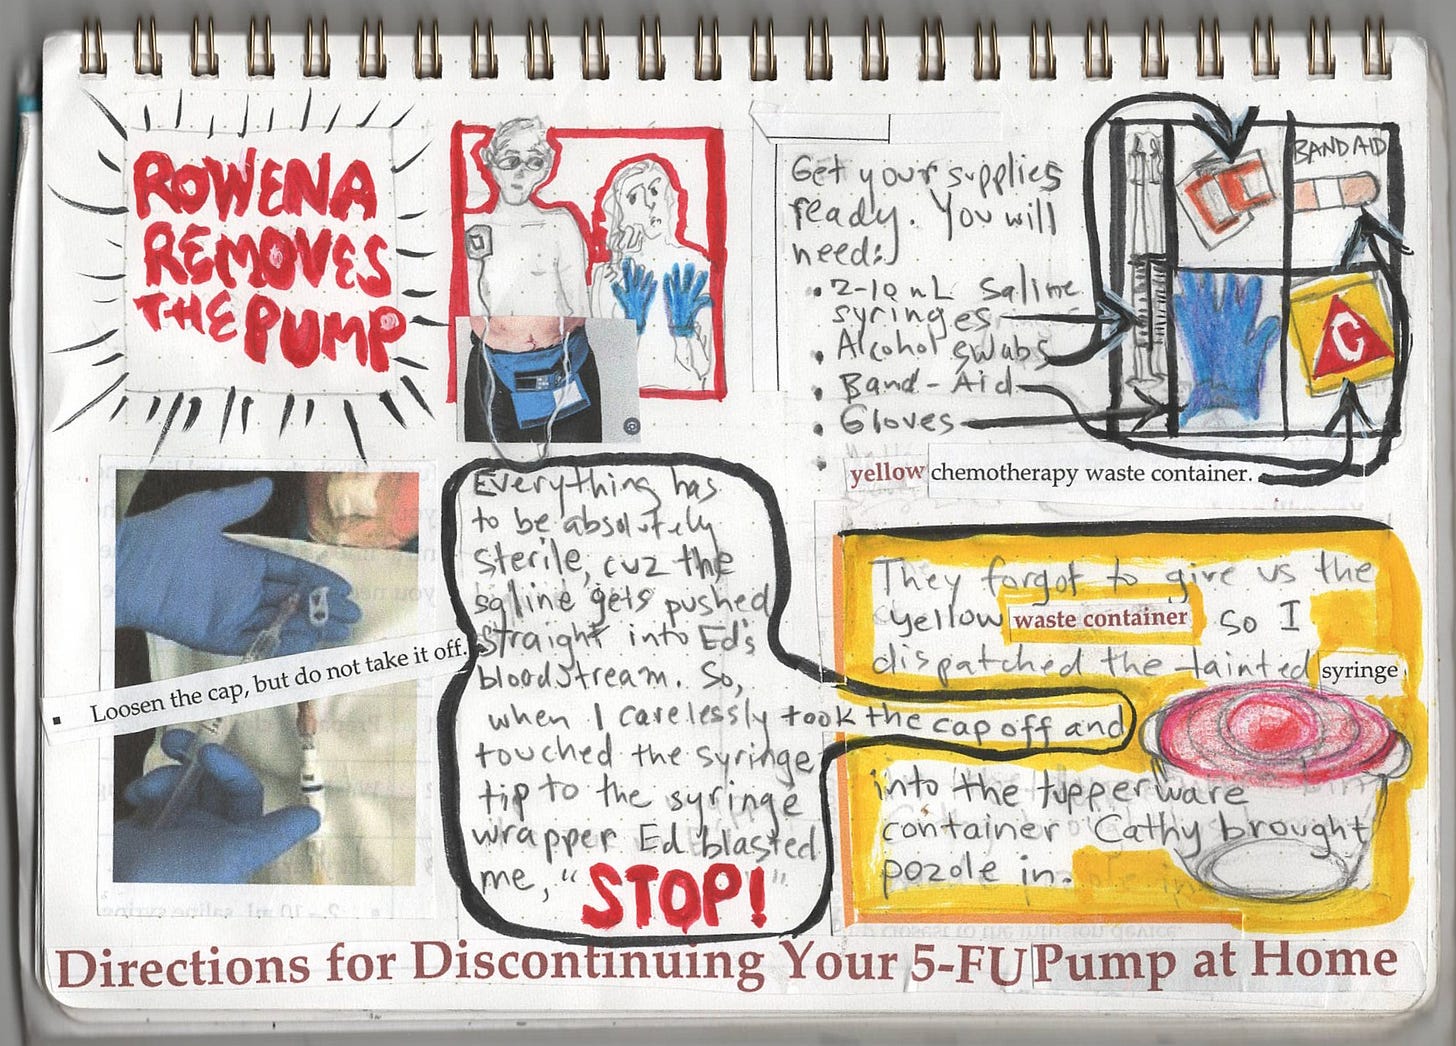 ROWENA
REMOVES
THE PUMP
Get your supplies
ready. You will
need:
• 2-10 mL saline
syringes
• Alcohol swabs
• Band-Aid
• Gloves
•
yellow chemotherapy waste container.
BAND AID
C
▪ Loosen the cap, but do not take it off.
Everything has
to be absolutely
sterile, cuz the
saline gets pushed
straight into Ed's
bloodstream. So,
when I carelessly took the cap off and
touched the syringe
tip to the syringe
wrapper Ed blasted
me, "STOP!"
They forgot to give us the
yellow waste container so I
dispatched the tainted syringe
into the tupperware
container Cathy brought
pozole in.
Directions for Discontinuing Your 5-FU Pump at Home